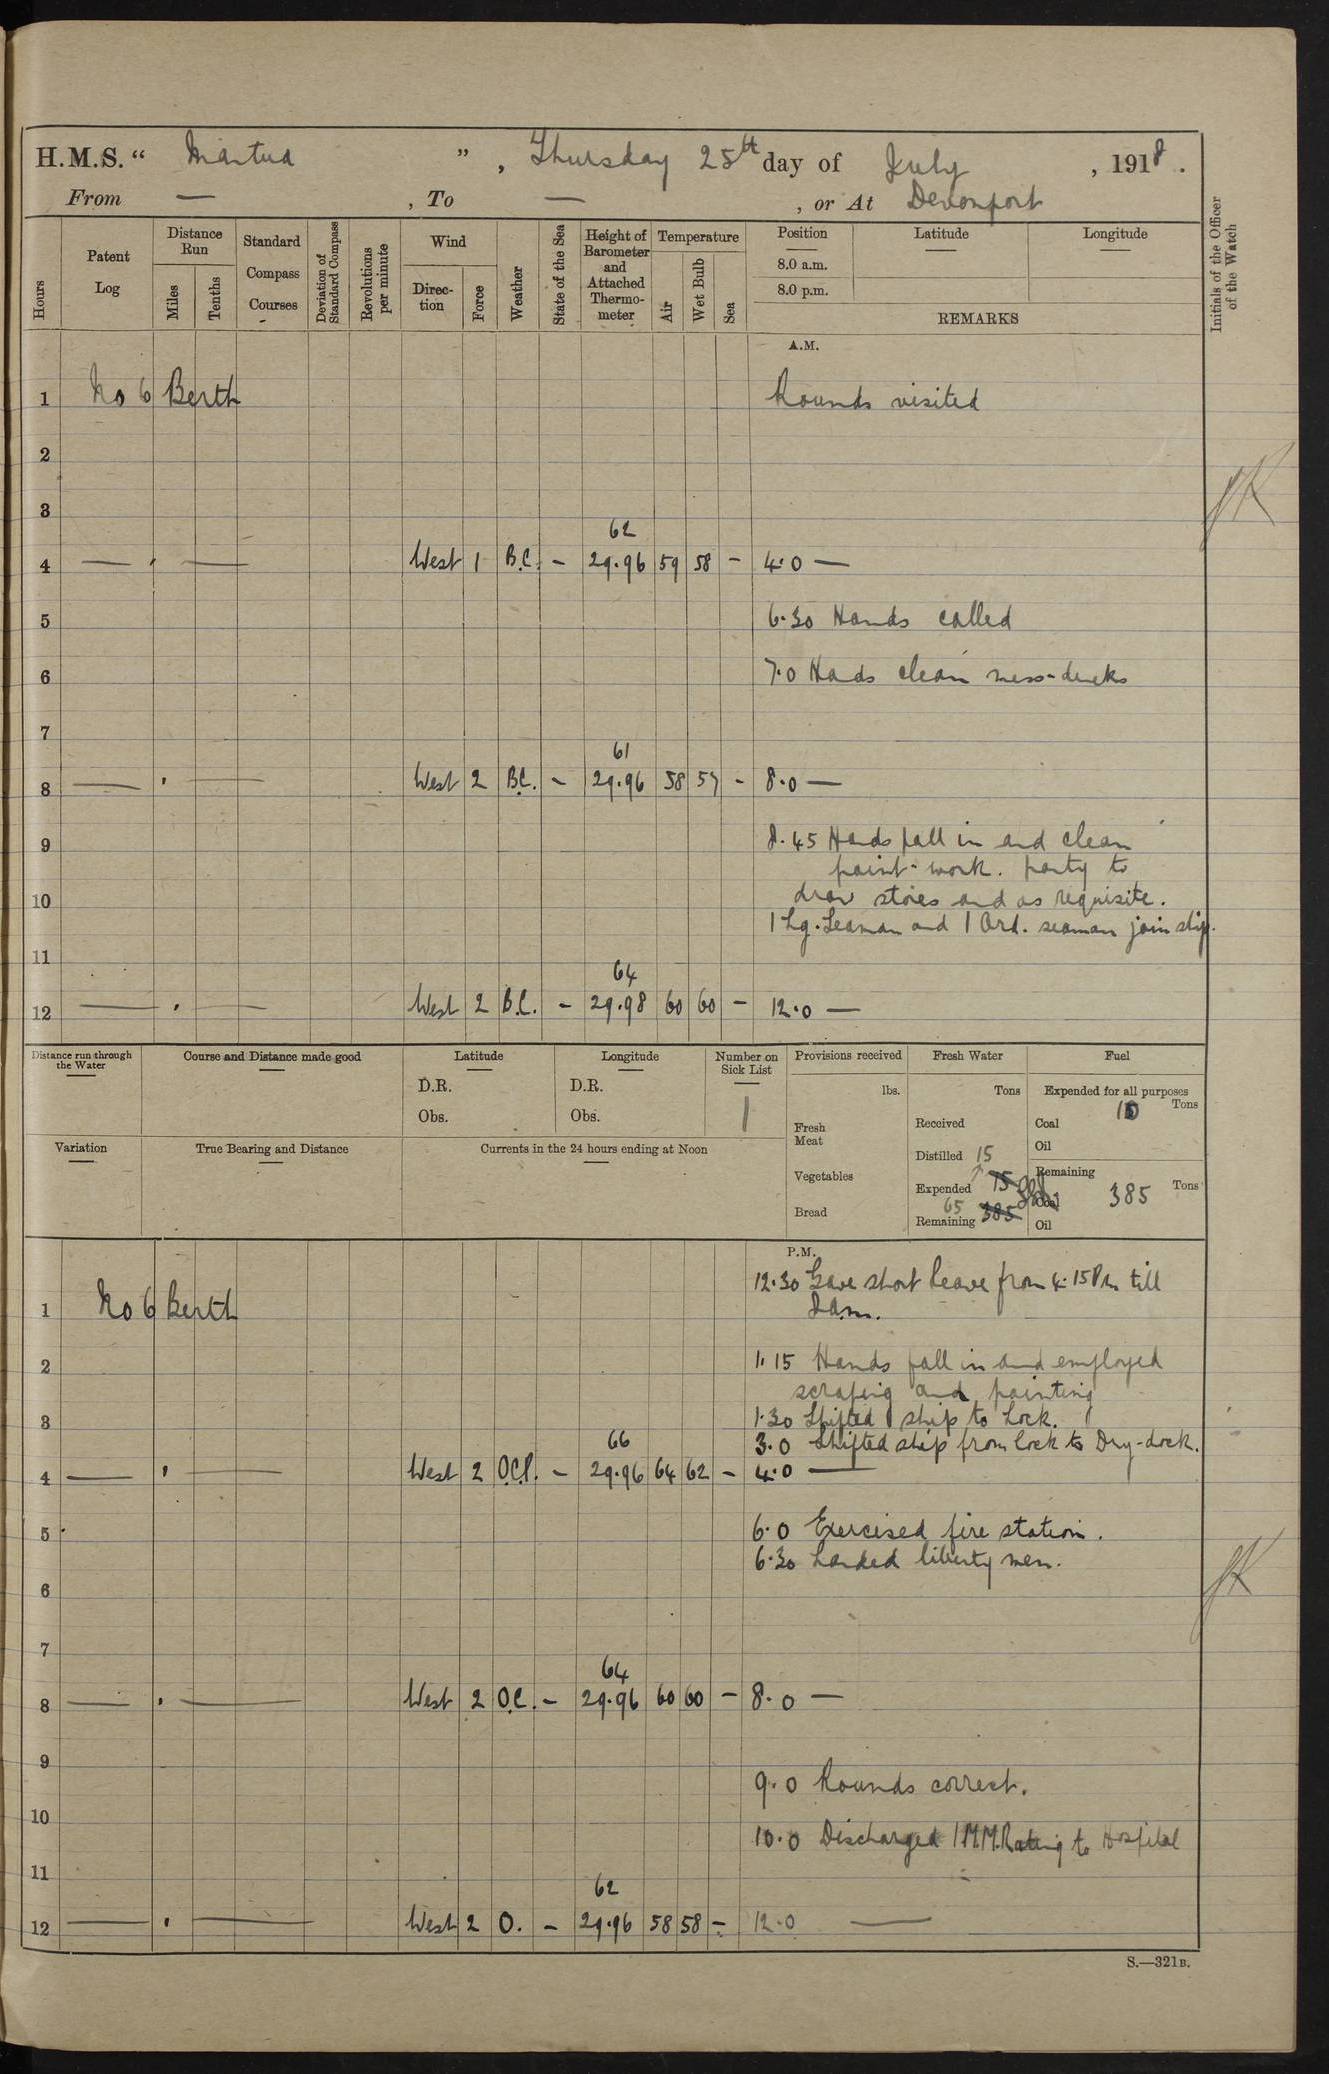 H.M.S. “ Mantua ” , Thursday 25th day of July , 1918 .
From — , To — , or At Devonport
Hours
Patent Log
Distance Run
Miles
Tenths
Standard Compass Courses
Deviation of Standard Compass
Revolutions per minute
Wind
Direction
Force
Weather
State of the Sea
Height of Barometer and Attached Thermometer
Temperature
Air
Wet Bulb
Sea
Position
8.0 a.m.
8.0 p.m.
Latitude
Longitude
REMARKS
Initials of the Officer of the Watch
A.M.
1 No 6 Berth Rounds visited
2
3
62
4 — · — West 1 B.C. – 29.96 59 58 – 4.0 —
5 6.30 Hands called
6 7.0 Hads clean mess-decks
7
61
8 — · — West 2 B.C. – 29.96 58 57 – 8.0 —
9 8.45 Hands fall in and clean
paint-work. party to
10 draw stores and as requisite.
1 Lg. Seaman and 1 Ord. seaman join ship.
11
64
12 — · — West 2 B.C. – 29.98 60 60 – 12.0 —
Distance run through the Water
Course and Distance made good
Latitude
D.R.
Obs.
Longitude
D.R.
Obs.
Number on Sick List
1
Provisions received
lbs.
Fresh Meat
Vegetables
Bread
Fresh Water
Tons
Received
Distilled 15
Expended 15
65
Remaining 385
Fuel
Expended for all purposes
Tons
Coal 10
Oil
Remaining
Coal 385 Tons
Oil
Variation
True Bearing and Distance
Currents in the 24 hours ending at Noon
P.M.
12.30 Gave short leave from 4.15 Pm till
1 No 6 Berth 8 am.
2 1.15 Hands fall in and employed
scraping and painting
3 1.30 Shifted ship to Lock.
66 3.0 Shifted ship from lock to Dry-dock.
4 — · — West 2 O.C.P. – 29.96 64 62 – 4.0 —
5 6.0 Exercised fire station.
6.30 Landed liberty men.
6
7
64
8 — · — West 2 O.C. – 29.96 60 60 – 8.0 —
9
9.0 Rounds correct.
10
10.0 Discharged 1 M.M.Rating to Hospital
11
62
12 — · — West 2 O. – 29.96 58 58 – 12.0 —
S.—321B.